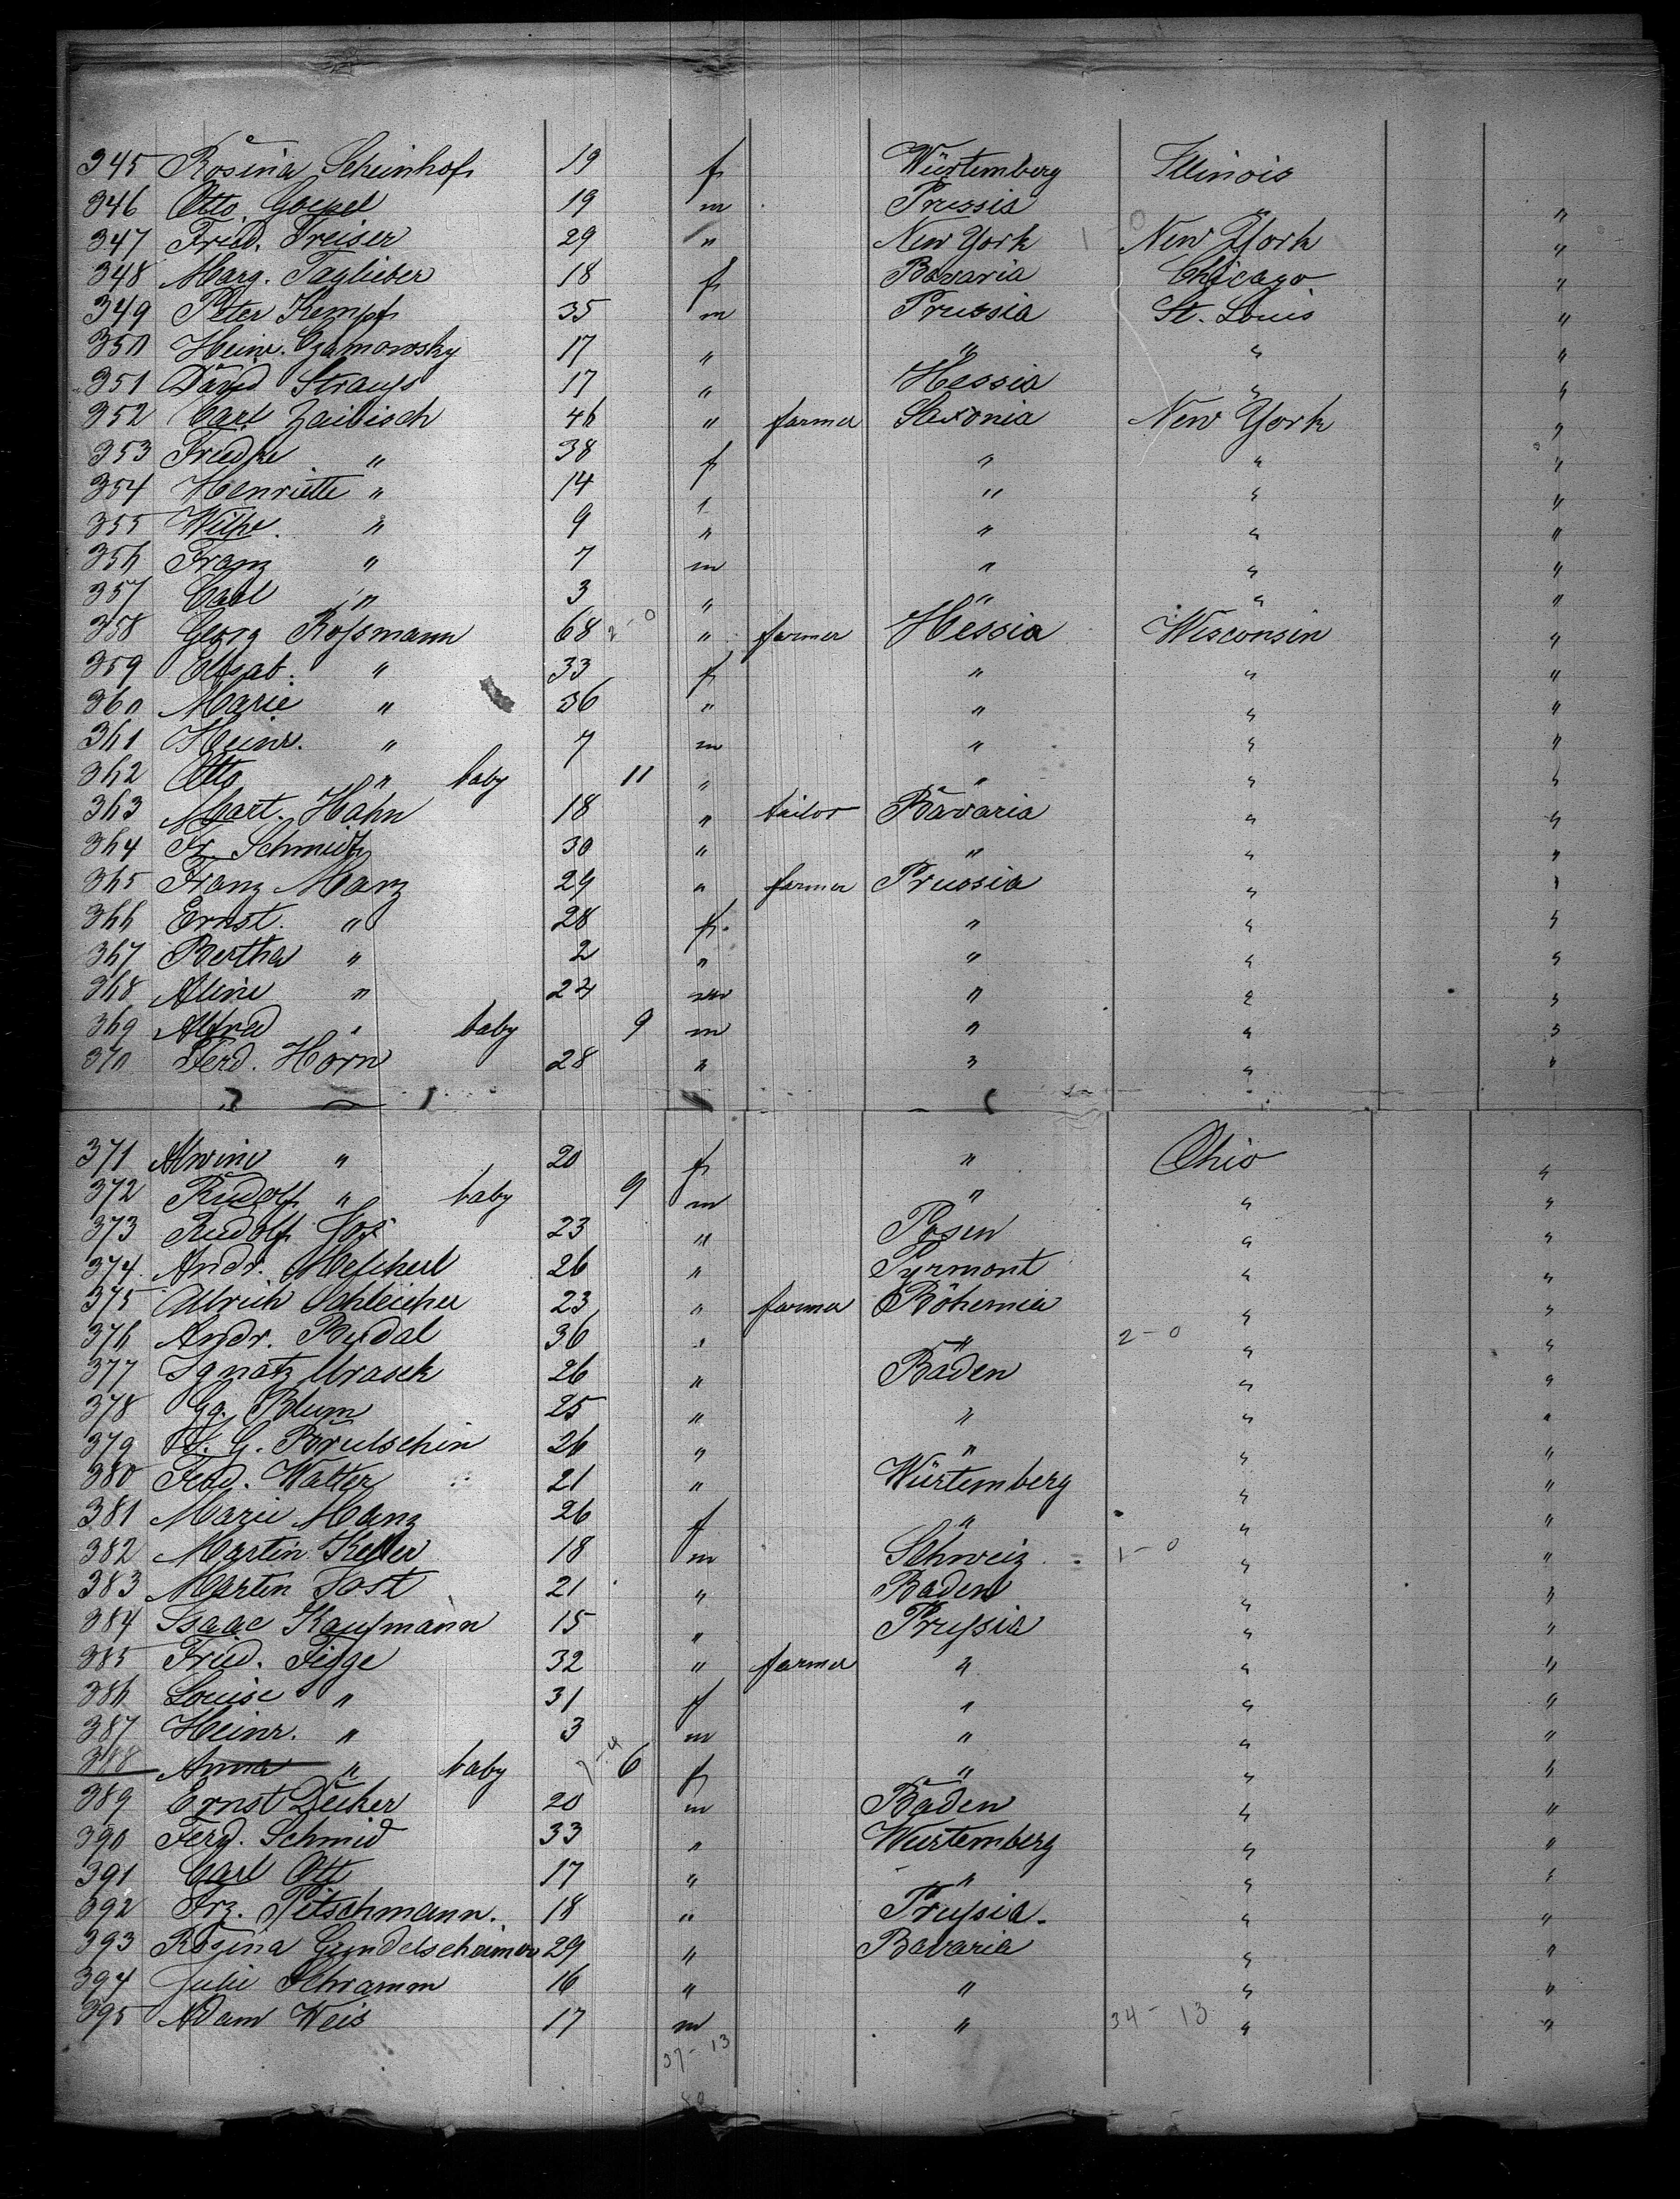 345 Rosina Scheinhof 19 f Würtemberg Illinois
346 Otto Goepel 19 m Prussia " "
347 Fried. Treiser 29 " New York 1-0 New York "
348 Marg. Taglieber 18 f Bavaria Chicago "
349 Peter Kempf 35 m Prussia St. Louis "
350 Heinr. Czamowsky 17 " " " "
351 David Strauss 17 " Hessia " "
352 Carl Zaibisch 46 " farmer Saxonia New York "
353 Friedke " 38 f " " "
354 Henriette " 14 " " "
355 Wilhe. " 9 " " " "
356 Franz " 7 m " " "
357 Carl " 3 " " " "
358 Georg Rossmann 68 2-0 " farmer Hessia Wisconsin "
359 Elisab. " 33 f " " "
360 Marie " 36 " " " "
361 Heinr. " 7 m " " "
362 Otto " baby 11 " " " "
363 Mart. Hahn 18 " tailor Bavaria " "
364 Fr. Schmidt 30 " " " "
365 Franz Manz 29 " farmer Prussia " "
366 Ernst. " 28 f. " " "
367 Bertha " 2 " " " "
368 Aline " 24 " " "
369 Alfred " baby 9 m " " "
370 Ferd. Horn 28 " " " "
371 Alwine " 20 f " Ohio "
372 Rudolf " baby 9 m " " "
373 Rudolf 23 " Posen " "
374 Andr. 26 " Pyrmont " "
375 Ullrich Schleicher 23 " farmer Bohemia " "
376 Andr. Bydal 36 " " 2-0 " "
377 Ignatz Mrasek 26 " Baden " "
378 Gg. Blum 25 " " " "
379 G. Brutschin 26 " " " "
380 Ferd. Walter 21 " Würtemberg " "
381 Marie Manz 26 f " " "
382 Martin Keller 18 m Schweiz 1-0 " "
383 Martin Jost 21 " Baden " "
384 Isaac Kaufmann 15 " Prussia " "
385 Fried. Figge 32 " farmer " " "
386 Louise " 31 f " " "
387 Heinr. " 3 m " " "
388 Anna " baby 6 f " " "
389 Ernst Decker 20 m Baden " "
390 Ferd. Schmid 33 " Wurtemberg " "
391 Carl Ott 17 " " " "
392 Frz. Pitschmann. 18 " Prussia. " "
393 Rosina Gundelsheimer 29 " Bavaria " "
394 Julie Schramm 16 " " " "
395 Adam Weis 17 m " 34-13 " "
37-13